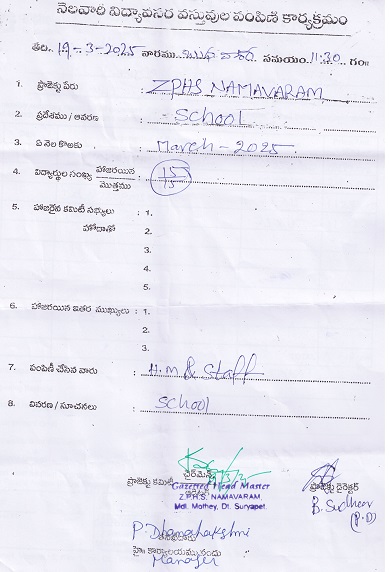 నెలవారి విద్యావసర వస్తువుల పంపిణి కార్యక్రమం
తేది.. 19-3-2025 వారము.. బుధవారం. సమయం. 11:30 గం॥
1. ప్రాజెక్టు పేరు : ZPHS NAMAVARAM
2. ప్రదేశము / ఆవరణ : School
3. ఏ నెల కొఱకు : March - 2025
4. విద్యార్థుల సంఖ్య హాజరయిన / మొత్తము : 15/15
5. హాజరైన కమిటీ సభ్యులు : 1.
హోదాతో 2.
3.
4.
5.
6. హాజరయిన ఇతర ముఖ్యులు : 1.
2.
3.
7. పంపిణీ చేసిన వారు : H.M & Staff
8. వివరణ / సూచనలు : School
ప్రాజెక్టు కమిటీ చైర్మెన్
ప్రాజెక్టు డైరెక్టర్
Gazetted Head Master
Z.P.H.S. NAMAVARAM,
Mdl. Mothey, Dt. Suryapet.
B. Sudheer
(P.D)
P. Dhanalakshmi
హై॥ కార్యాలయమునందు
Manager